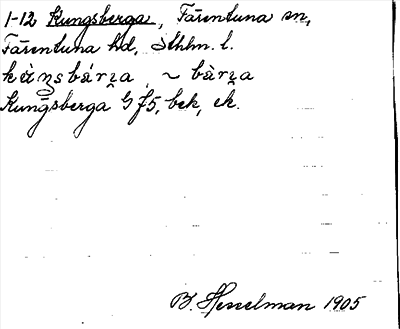 1-12 Kungsberga, Färentuna sn,
Färentuna hd, Sthlm. l.
~
Kungsberga G f5, bek, ek.
B. Hesselman 1905